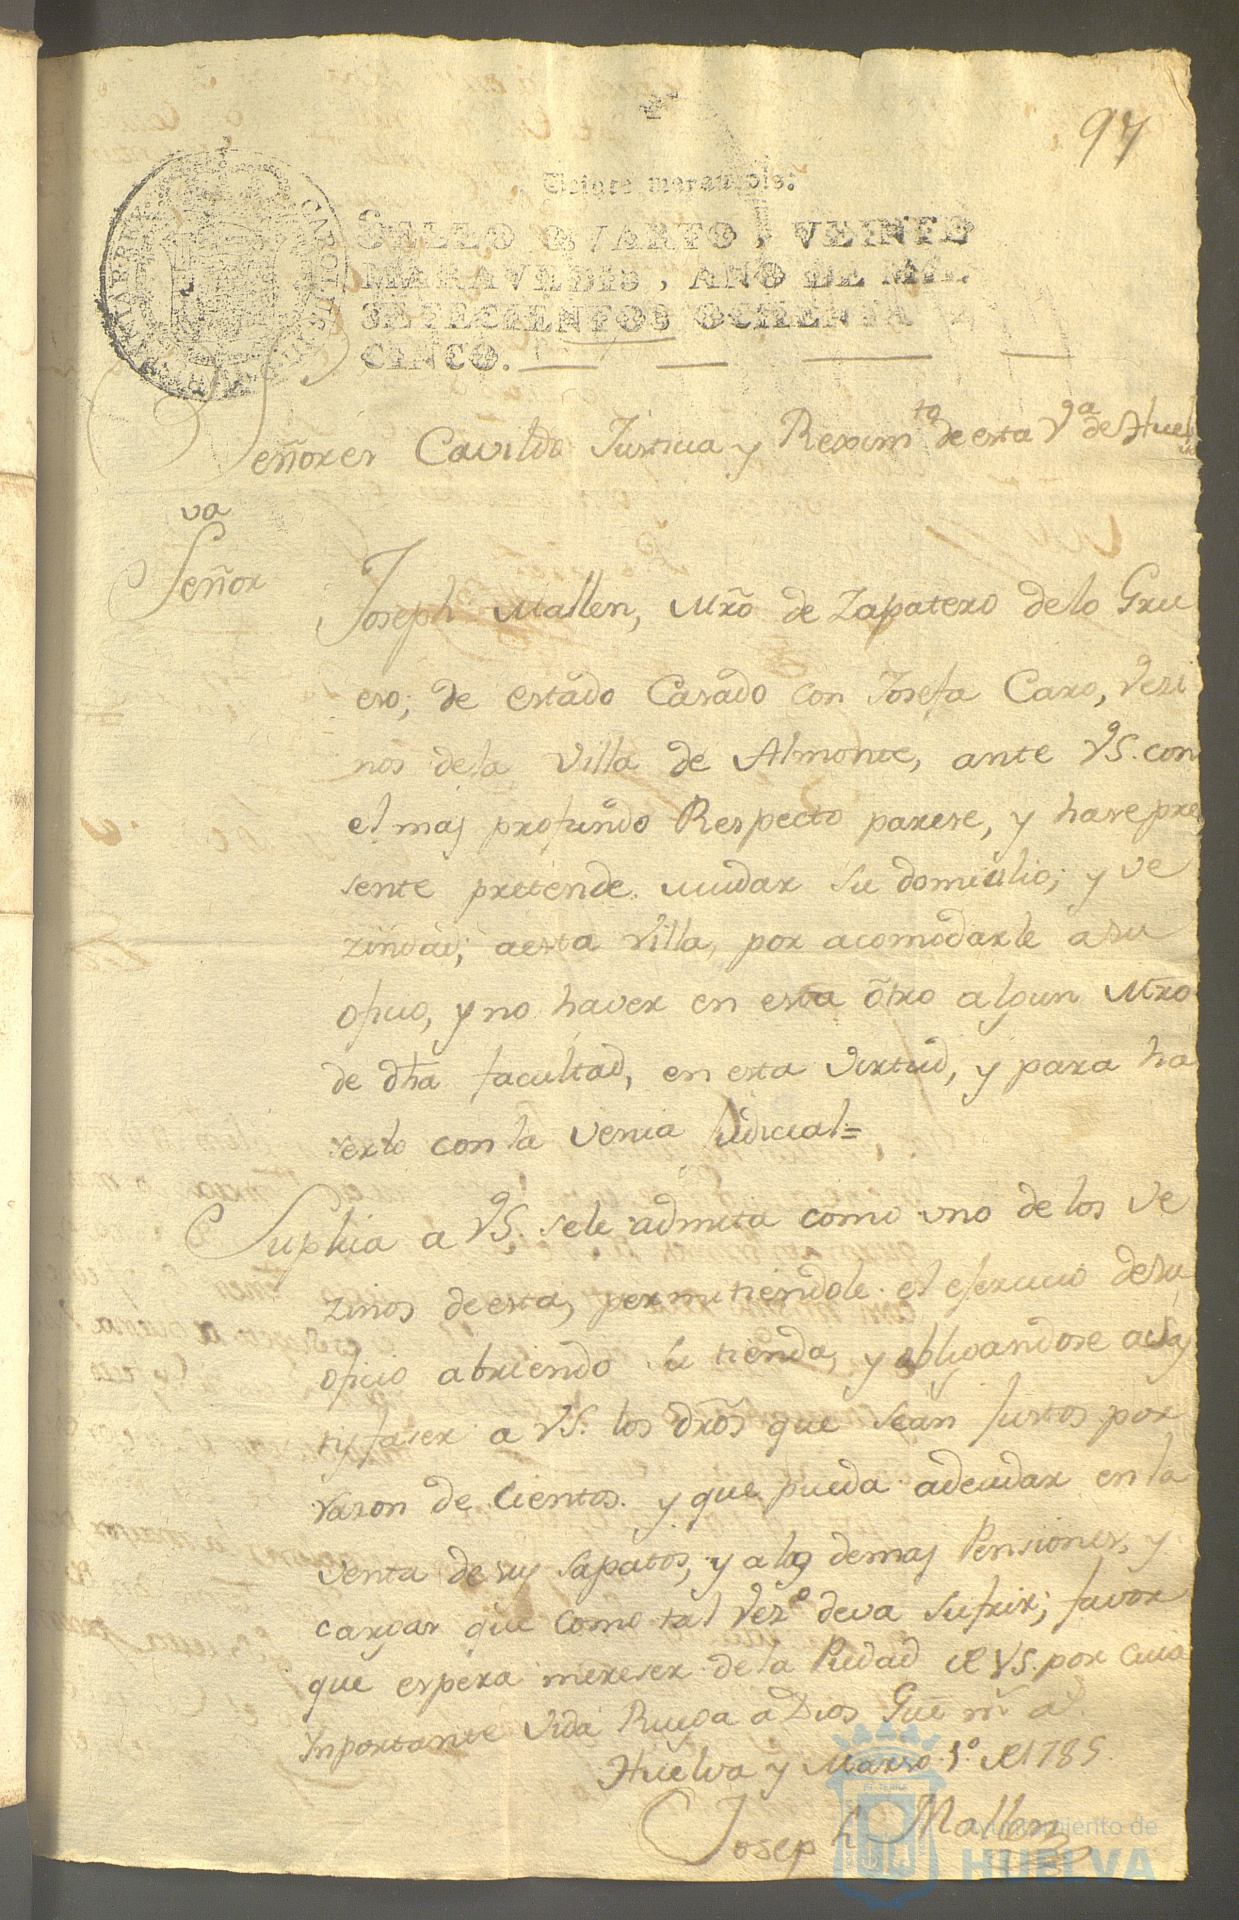 97
Veinte maravedis:
SELLO QVARTO, VEINTE
MARAVEDIS, AÑO DE MIL
SETECIENTOS OCHENTA
CINCO.
Señores Cavildo Justicia y Reximto de esta Va de Huel
va
Señor
Joseph Mallen, Mrõ de Zapatero delo Grue
eso; de estado Casado con Josefa Caro, vezi
nos dela Villa de Almonte, ante VS. con
el mas profundo Respecto parese, y hase pre
sente pretende mudar su domicilio; y ve
zindad; aesta villa, por acomodarle asu
oficio, y no haver en esta õtro algun Mrõ
de dha facultad, en esta virtud, y para ha
serlo con la venia Judicial=
Suplica a VS. sele admita como uno de los ve
zinos de esta, permitiendole el efercicio desu
oficio abriendo su tienda, y obligandose a sa
tisfaser a VS. los drõs que sean Justos por
razon de Cientos. y que pueda adeudar en la
venta de sus sapatos, y a los demas Pensiones, y
cargas que como tal Vezo deva sufrir; favor
que espera mereser de la Piedad de VS. por cuia
Inportante Vida Ruega a Dios Gue ms as.
Huelva y Marso 1o. de 1785.
Joseph Mallen
Ayuntamiento de
HUELVA